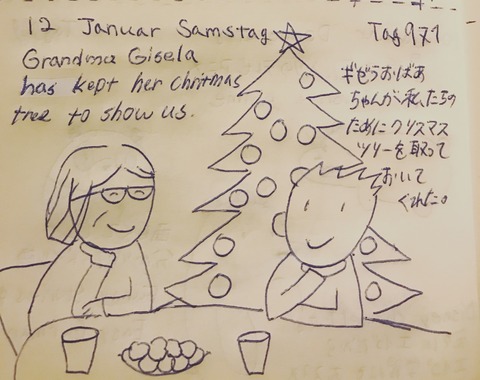 12 Januar Samstag
Grandma Gisela
has kept her christmas
tree to show us.
Tag 971
ギぜらおばあ
ちゃんが私たちの
ためにクリスマス
ツリーを取って
おいて
くれた。